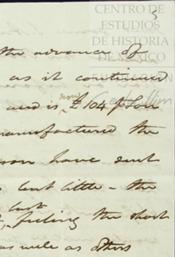 CENTRO DE
ESTUDIOS
DE HISTORIA
DE MÉXICO
the advance of
as it continued
and is now £104 p Ton
manufactured the
son have sent
but little - the
last
feeling the short
as well as others